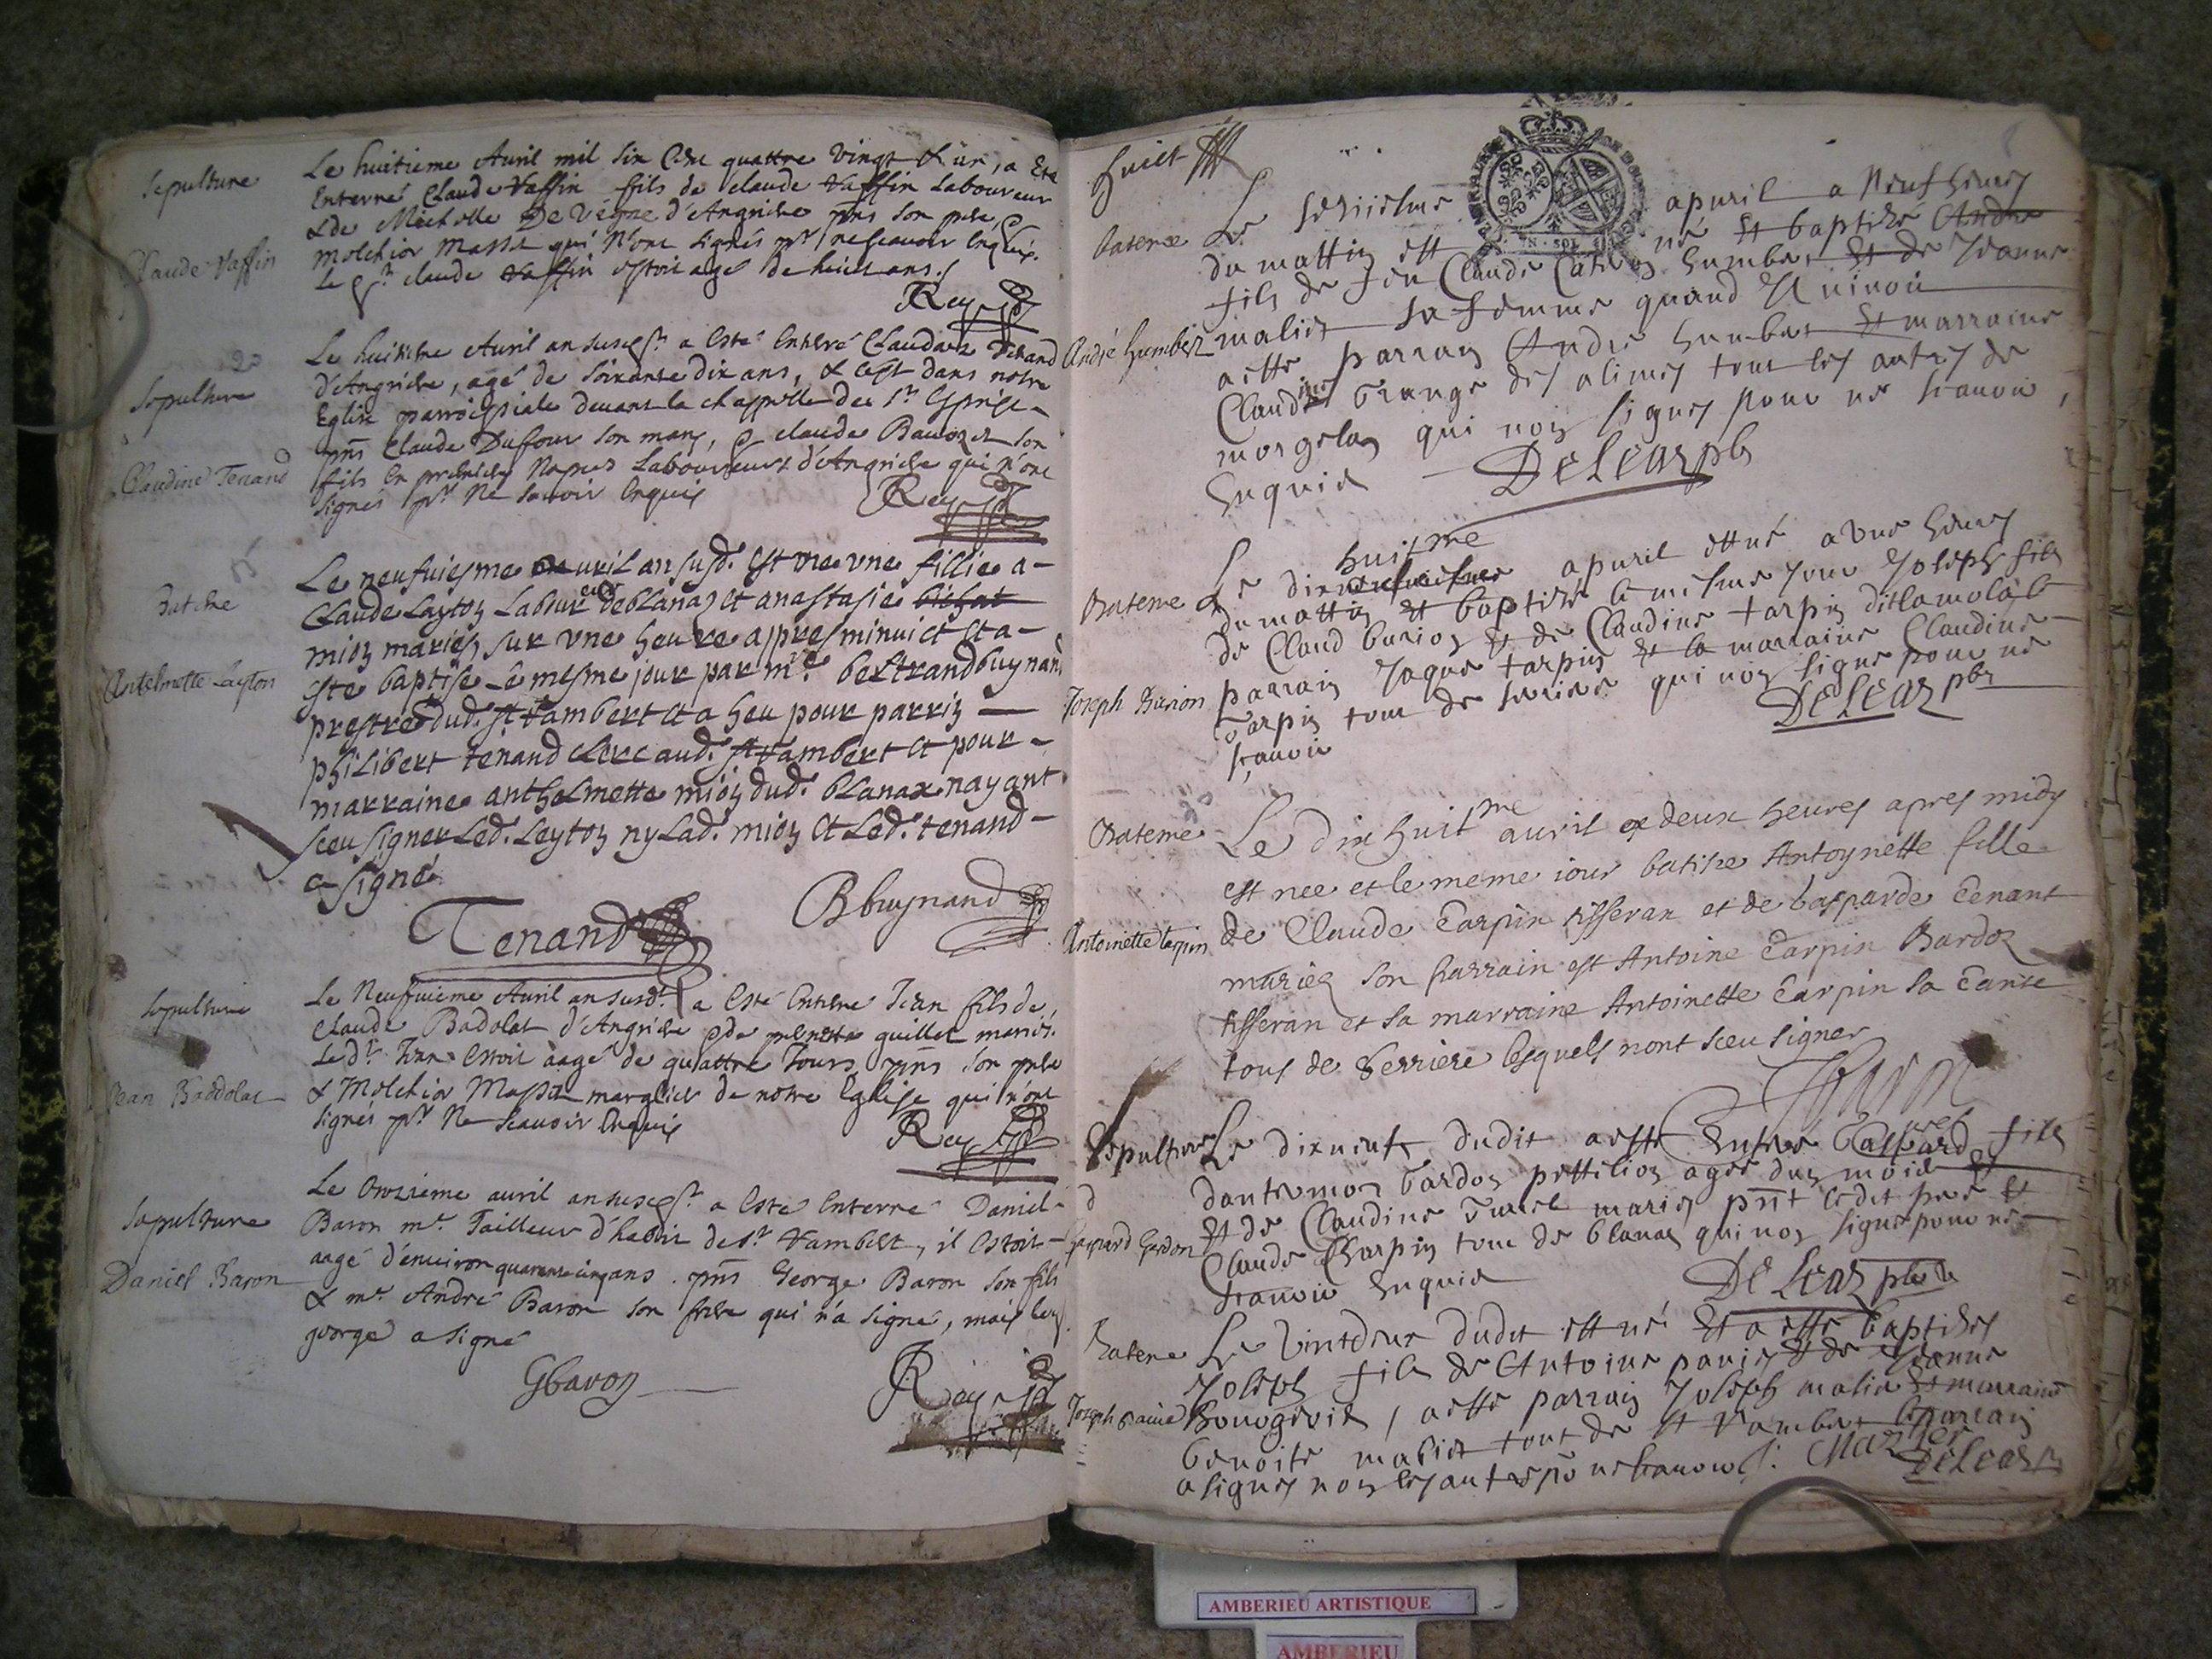 Sepulture
Claude Vaffin
Le huitieme Auril mil six Cent quattre Vingt & un, a Esté
Enterré Claude Vaffin fils de Claude Vaffin Laboureur
& de Michelle De Veyne d'Angriere pñs son pere, &
Molchior Massit qui N'ont signés pr ne scauoir Enquis.
le Claude Vaffin estoit agé de huict ans.
Rey
Sepulture
Claudine Tenand
Le huitieme Auril an susd. a esté Enterré Claudine Tenand
d'Angriere, agé de soixante dix ans, & c'est dans notre
Eglise parroissiale deuant la chappelle du St Esprit
pñs Claude Dufour son mary, & claude
fils Laboureurs d'Angriere qui n'ont
signés pr Ne sauoir Enquis
Rey
Batême
Antelmette Layton
Le neufuiesme auril an susd. est nee une fillie a
Claude Laytoz Laboureur de blanaz et anastasie bichat
mioz mariez sur une heure appres minuict et a
este baptise Le mesme jour par mre bertrand buynand
prestre dud. st Vambert et a heu pour parriz
philibert tenand clerc aud. st Vambert et pour
marraine anthelmette mioz dud. blanax nayant
sceu signer Led. Leytoz ny Lad. mioz et Led. tenand
a signé
Tenand
Bbuynand
Sepulture
Jean Baddolat
Le Neufuieme Auril an susd. a Esté Enterré Jean fils de
Claude Badolat d'Angriere & de guillet mariés.
Led. Jean estoit aagé de quattre Jours, pñs son pere
& Molchior Massit marglier de notre Eglise qui n'ont
signés pr Ne scauoir Enquis
Rey
Sepulture
Daniel Baron
Le Onzieme auril an susd. a Esté Enterré Daniel
Baron me Tailleur d'habit de St Vambert, il estoit
aagé d'enuiron quarante cinq ans. pñs George Baron son fils
& me André Baron son frere qui n'a signé, mais led.
george a signé
Gbaron
Rey
huict
Bateme
André humbert
Le seiziesme apuril a neuf heures
du mattin est né et baptizé Andre
fils de feu Claude humbert et de Jeanne
maliet sa femme quand Il viuoit
a este parrain Andre humbert et marraine
Claudine des alimes tous les autres de
morgelas qui non signes pour ne scauoir,
Enquis
DeLeaz pbr
Bateme
Joseph Burion
huitme
Le dixneufuiesme apuril est né a une heures
du mattin et baptizé le mesme Jour Joseph fils
de Claud burioz et de Claudine tarpin dit lamolàt
parrain Jaque tarpin et la marraine Claudine
tarpin tous de seriere qui non signe pour ne
scauoir
DeLeaz pbr
Bateme
Antoinette tarpin
Le dix huitme auril a deux heures apres midy
est nee et le meme iour batisee Antoynette fille
de Claude Tarpin tisseran et de Gasparde Tenant
mariez son parrain est Antoine Tarpin Bardoz
tisseran et sa marraine Antoinette Tarpin sa Tante
tous de Serriere lesquels nont sceu signer
Sepulture
Gaspard Gardon
Le dixneuf dudit a este Enterré Gaspard fils
dantremon agee dun mois
et de Claudine mariez pñt ledit pere et
Claude Charpin tous de blanas qui non signe pour ne
scauoir Enquis
De Leaz pbr
Bateme
Joseph pauie
Le Vintdeux dudit est né Et a este baptizes
Joseph fils de Antoine et de Jeanne
Bourgeois, a este parrain Joseph malié et marraine
benoite maliet tous de st Vambert le parrain
a signes non les autres po ne scauoir.
DeLeaz
AMBERIEU ARTISTIQUE
AMBERIEU